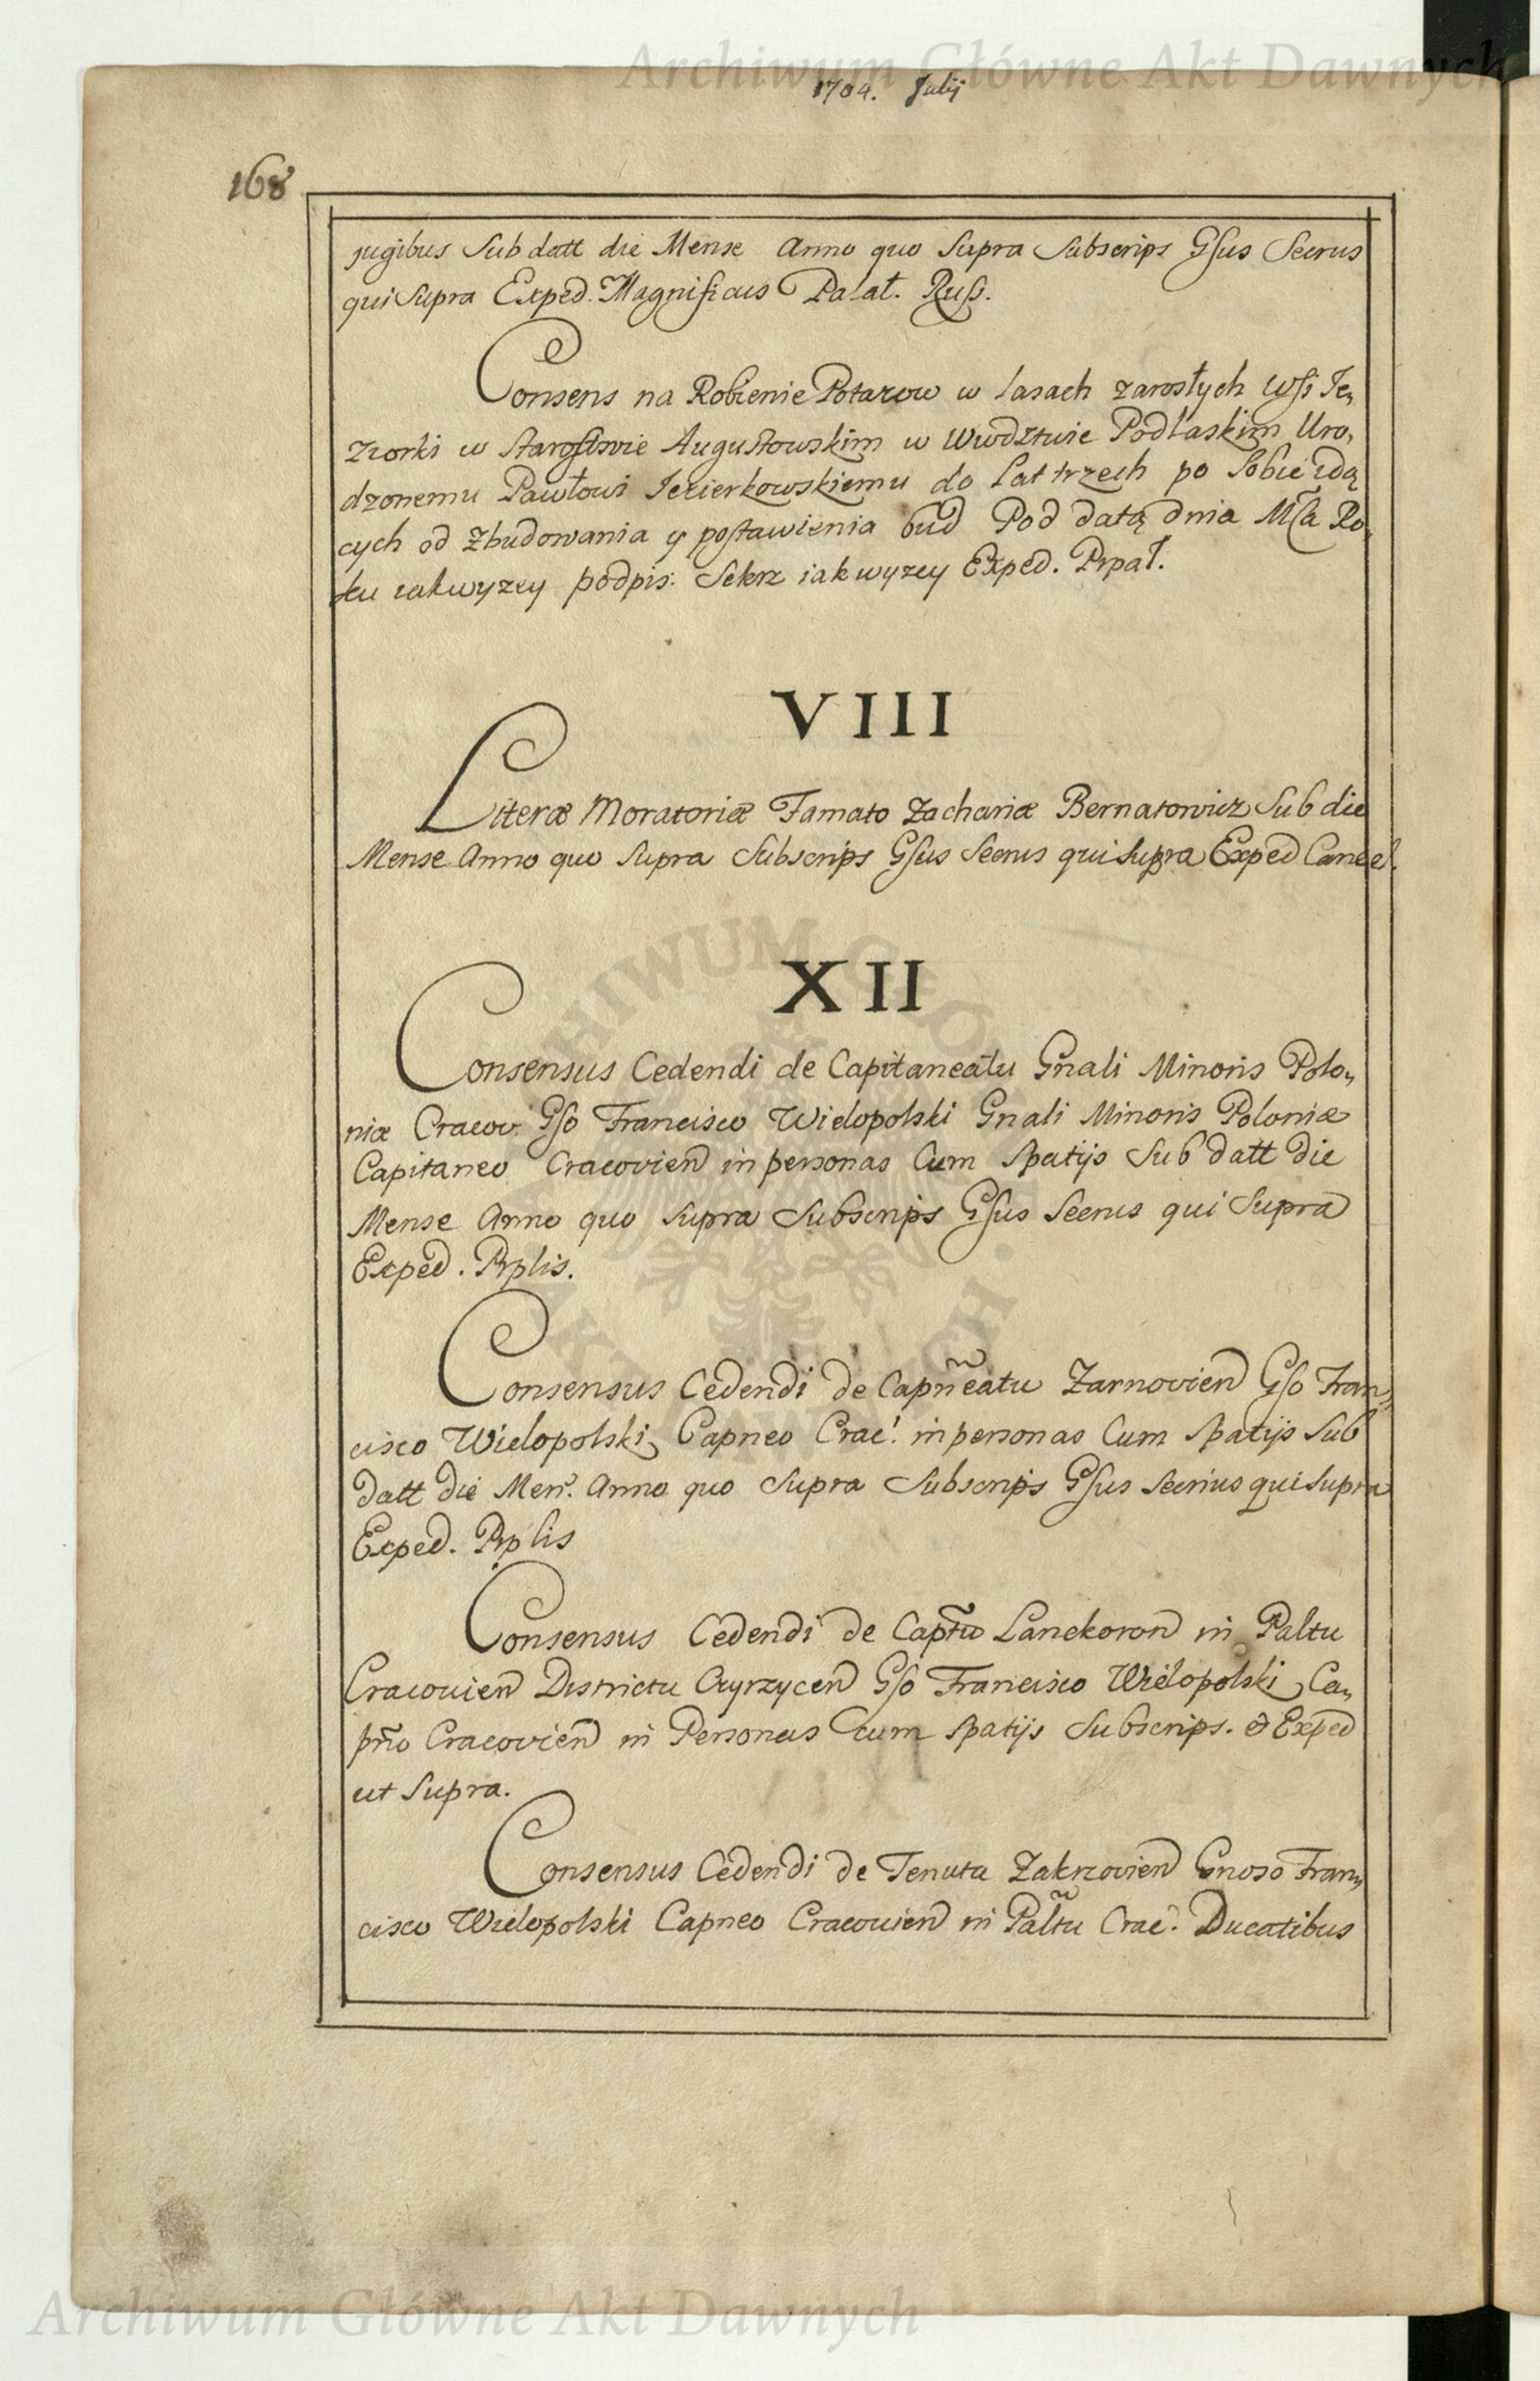 Archiwum Główne Akt Dawnych
1704. Julij
168
jugibus Sub datt die Mense Anno quo Supra Subscrips Gsus Secrus
qui Supra Exped. Magnificus Palat. Russ.
Consens na Robienie Potazow w lasach zarosłych Wsi Je,
ziorki w Starostwie Augustowskim w Wwodztwie Podlaskim Uro,
dzonemu Pawłowi Jezierkowskiemu do Lat trzech po Sobie idą
cych od Zbudowania y postawienia bud Pod datą dnia Msca Ro,
ku iakwyzey podpis: Sekrz iak wyzey Exped. Prpał.
VIII
Literæ Moratoriæ Famato Zachariæ Bernatowicz Sub die
Mense Anno quo Supra Subscrips Gsus Secrus qui Supra Exped Cancel.
XII
Consensus Cedendi de Capitaneatu Gnali Minoris Polo,
niæ Cracov. Gso Francisco Wielopolski Gnali Minoris Poloniæ
Capitaneo Cracovien in personas Cum Spatijs Sub datt die
Mense Anno quo Supra Subscrips Gsus Secrus qui Supra
Exped. Prplis.
Consensus Cedendi de Capneatu Zarnovien Gso Fran,
cisco Wielopolski, Capneo Crac! in personas Cum Spatijs Sub
datt die Men. Anno quo Supra Subscrips Gsus Secrius qui Supra
Exped. Prplis
Consensus Cedendi de Captu Lanckoron in Paltu
Cracovien Districtu Czyrzycen Gso Francisco Wielopolski, Ca,
pno Cracovien in Personas cum Spatijs Subscrips. et Exped
ut Supra.
Consensus Cedendi de Tenuta Zakrzovien Gnoso Fran,
cisco Wielopolski Capneo Cracovien in Paltu Crac. Ducatibus
Archiwum Główne Akt Dawnych